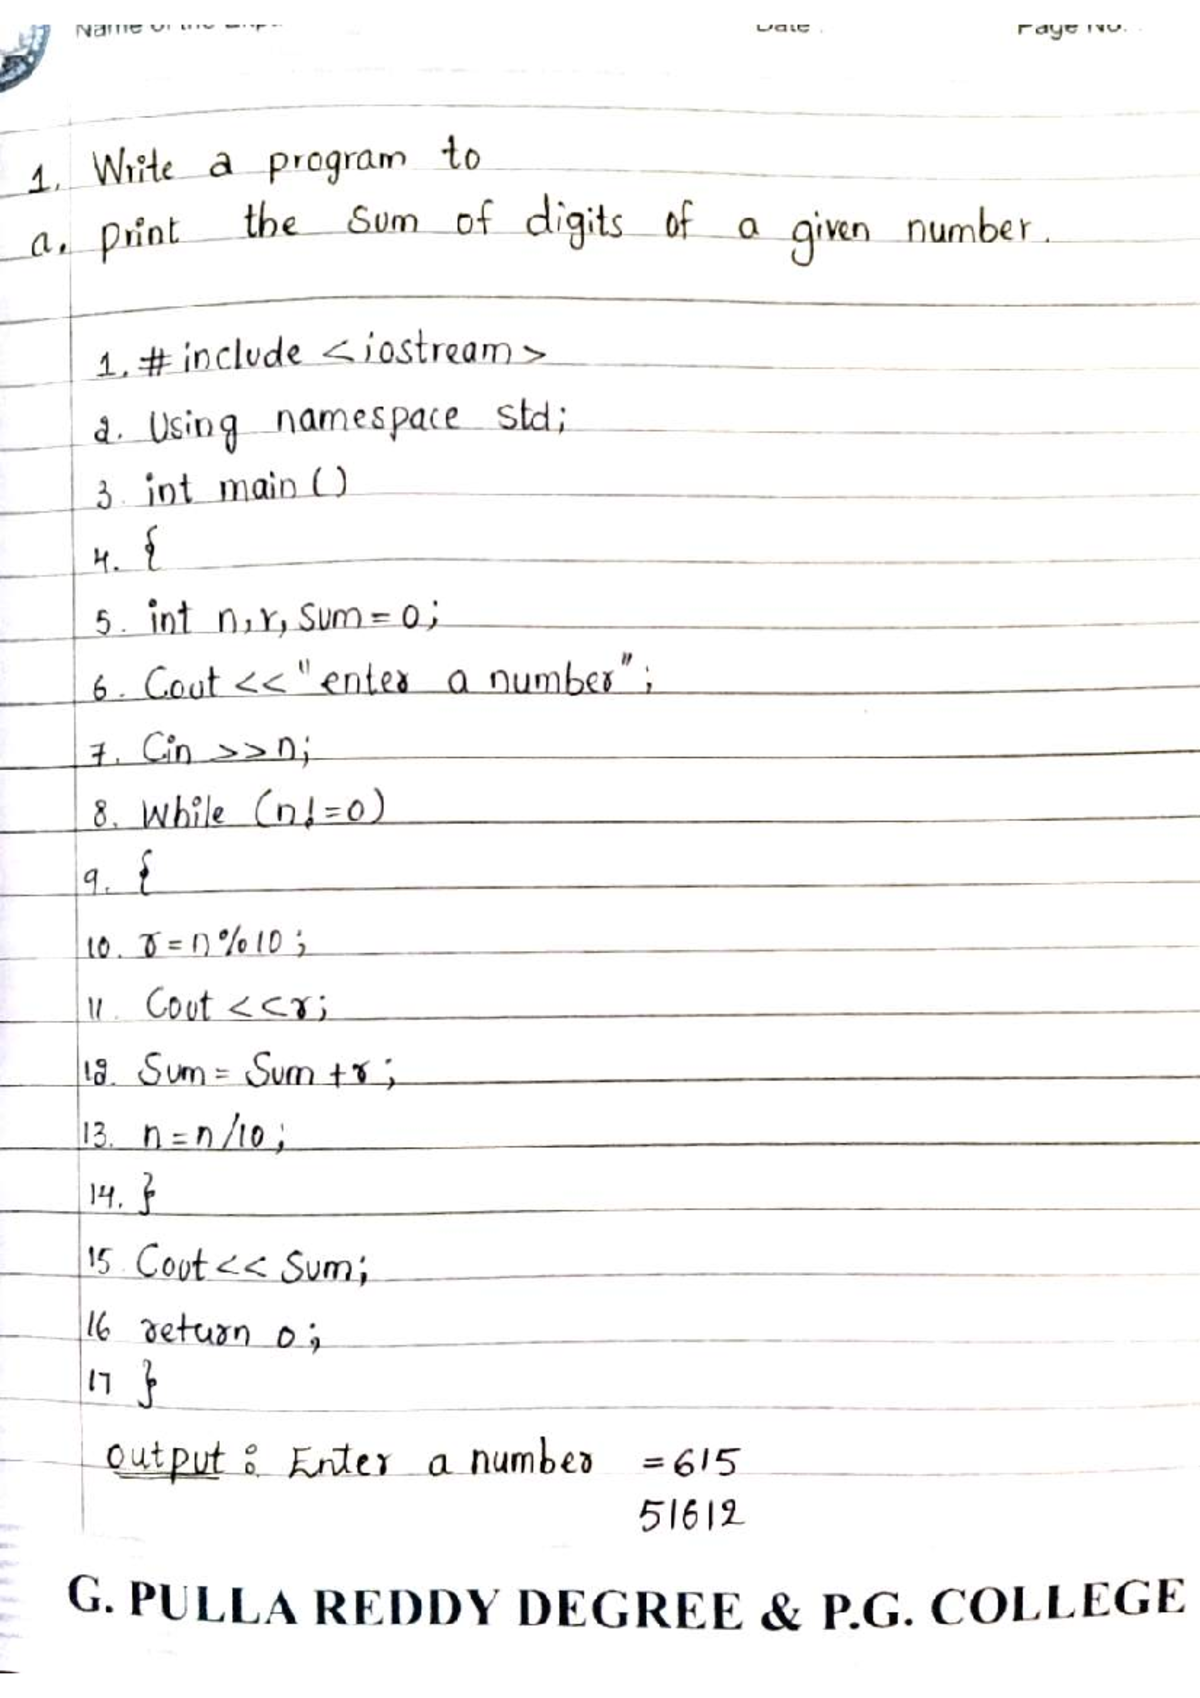 Name of the Exp
Date :
Page No. :
1. Write a program to
a. print the Sum of digits of a given number.
1. # include <iostream>
2. Using namespace std;
3. int main ()
4. {
5. int n, r, Sum = 0;
6. Cout << "enter a number";
7. Cin >> n;
8. While (n! = 0)
9. {
10. r = n % 10 ;
11. Cout << r;
12. Sum = Sum + r ;
13. n = n / 10 ;
14. }
15. Cout << Sum;
16 return 0 ;
17 }
Output : Enter a number = 615
51612
G. PULLA REDDY DEGREE & P.G. COLLEGE